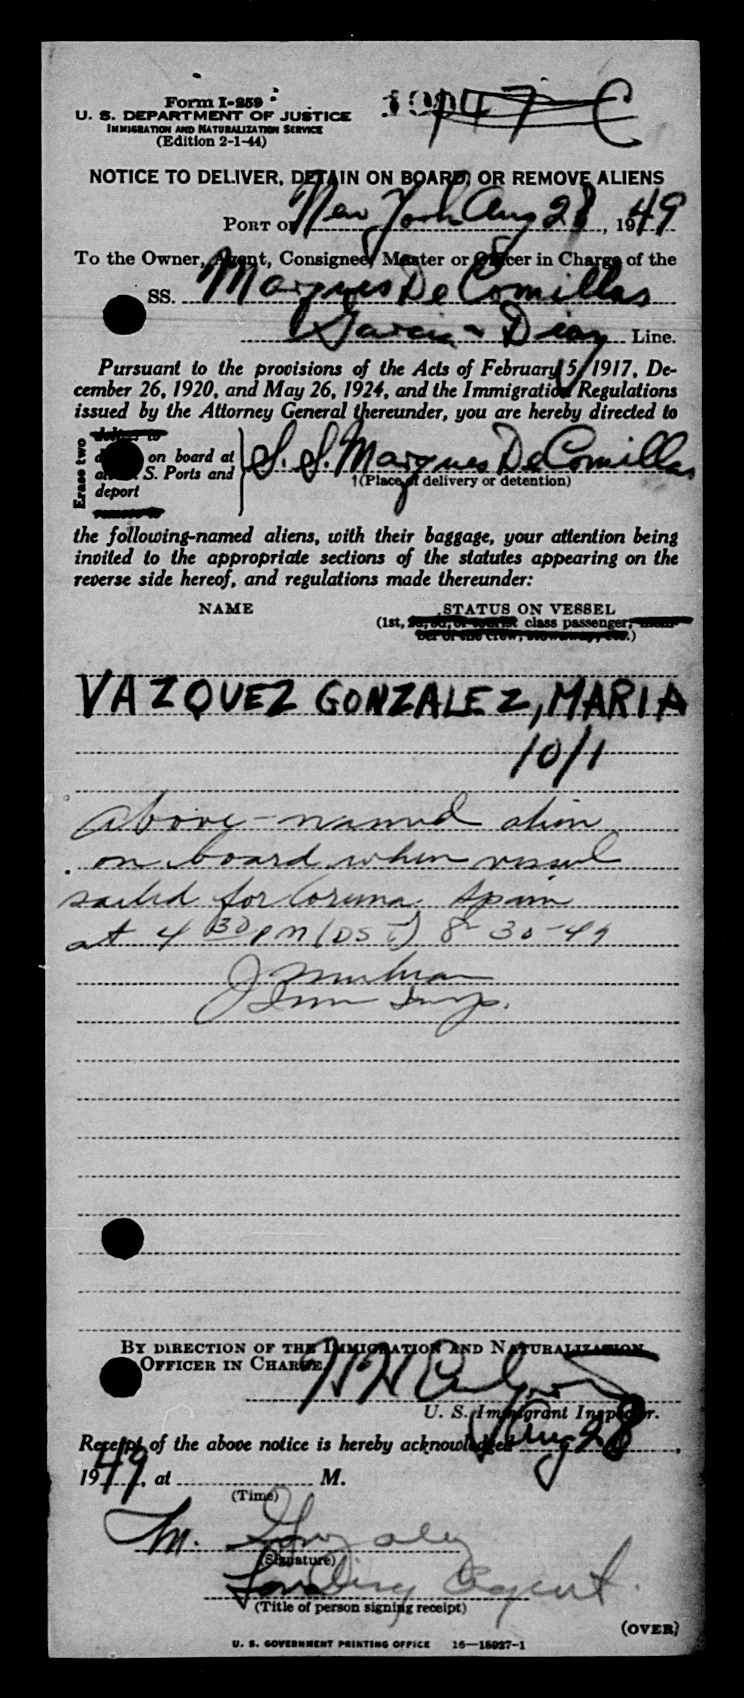 Form I-259
U. S. DEPARTMENT OF JUSTICE
IMMIGRATION AND NATURALIZATION SERVICE
(Edition 2-1-44)
C
NOTICE TO DELIVER, DETAIN ON BOARD, OR REMOVE ALIENS
PORT OF New York Aug 28, 1949
To the Owner, Agent, Consignee, Master or Officer in Charge of the
SS. Marques De Comillas
Garcia & Diaz Line.
Pursuant to the provisions of the Acts of February 5, 1917, De-
cember 26, 1920, and May 26, 1924, and the Immigration Regulations
issued by the Attorney General thereunder, you are hereby directed to
Erase two
deliver to
on board at
S. Ports and
deport
remove to
S. S. Marques De Comillas
†(Place of delivery or detention)
the following-named aliens, with their baggage, your attention being
invited to the appropriate sections of the statutes appearing on the
reverse side hereof, and regulations made thereunder:
NAME STATUS ON VESSEL
(1st, 2d, 3d, or tourist class passenger, mem-
ber of the crew, stowaway, etc.)
VAZQUEZ GONZALEZ, MARIA
10/1
Above-named alien
on board when vessel
sailed for Coruna, Spain
at 4 30 PM (DST) 8-30-49
Imm Insp.
BY DIRECTION OF THE IMMIGRATION AND NATURALIZATION
OFFICER IN CHARGE.
U. S. Immigrant Inspector.
Receipt of the above notice is hereby acknowledged Aug 28,
1949, at M.
(Time)
M. Gonzalez
(Signature)
Landing Agent.
(Title of person signing receipt)
(OVER)
U. S. GOVERNMENT PRINTING OFFICE 16—18927-1